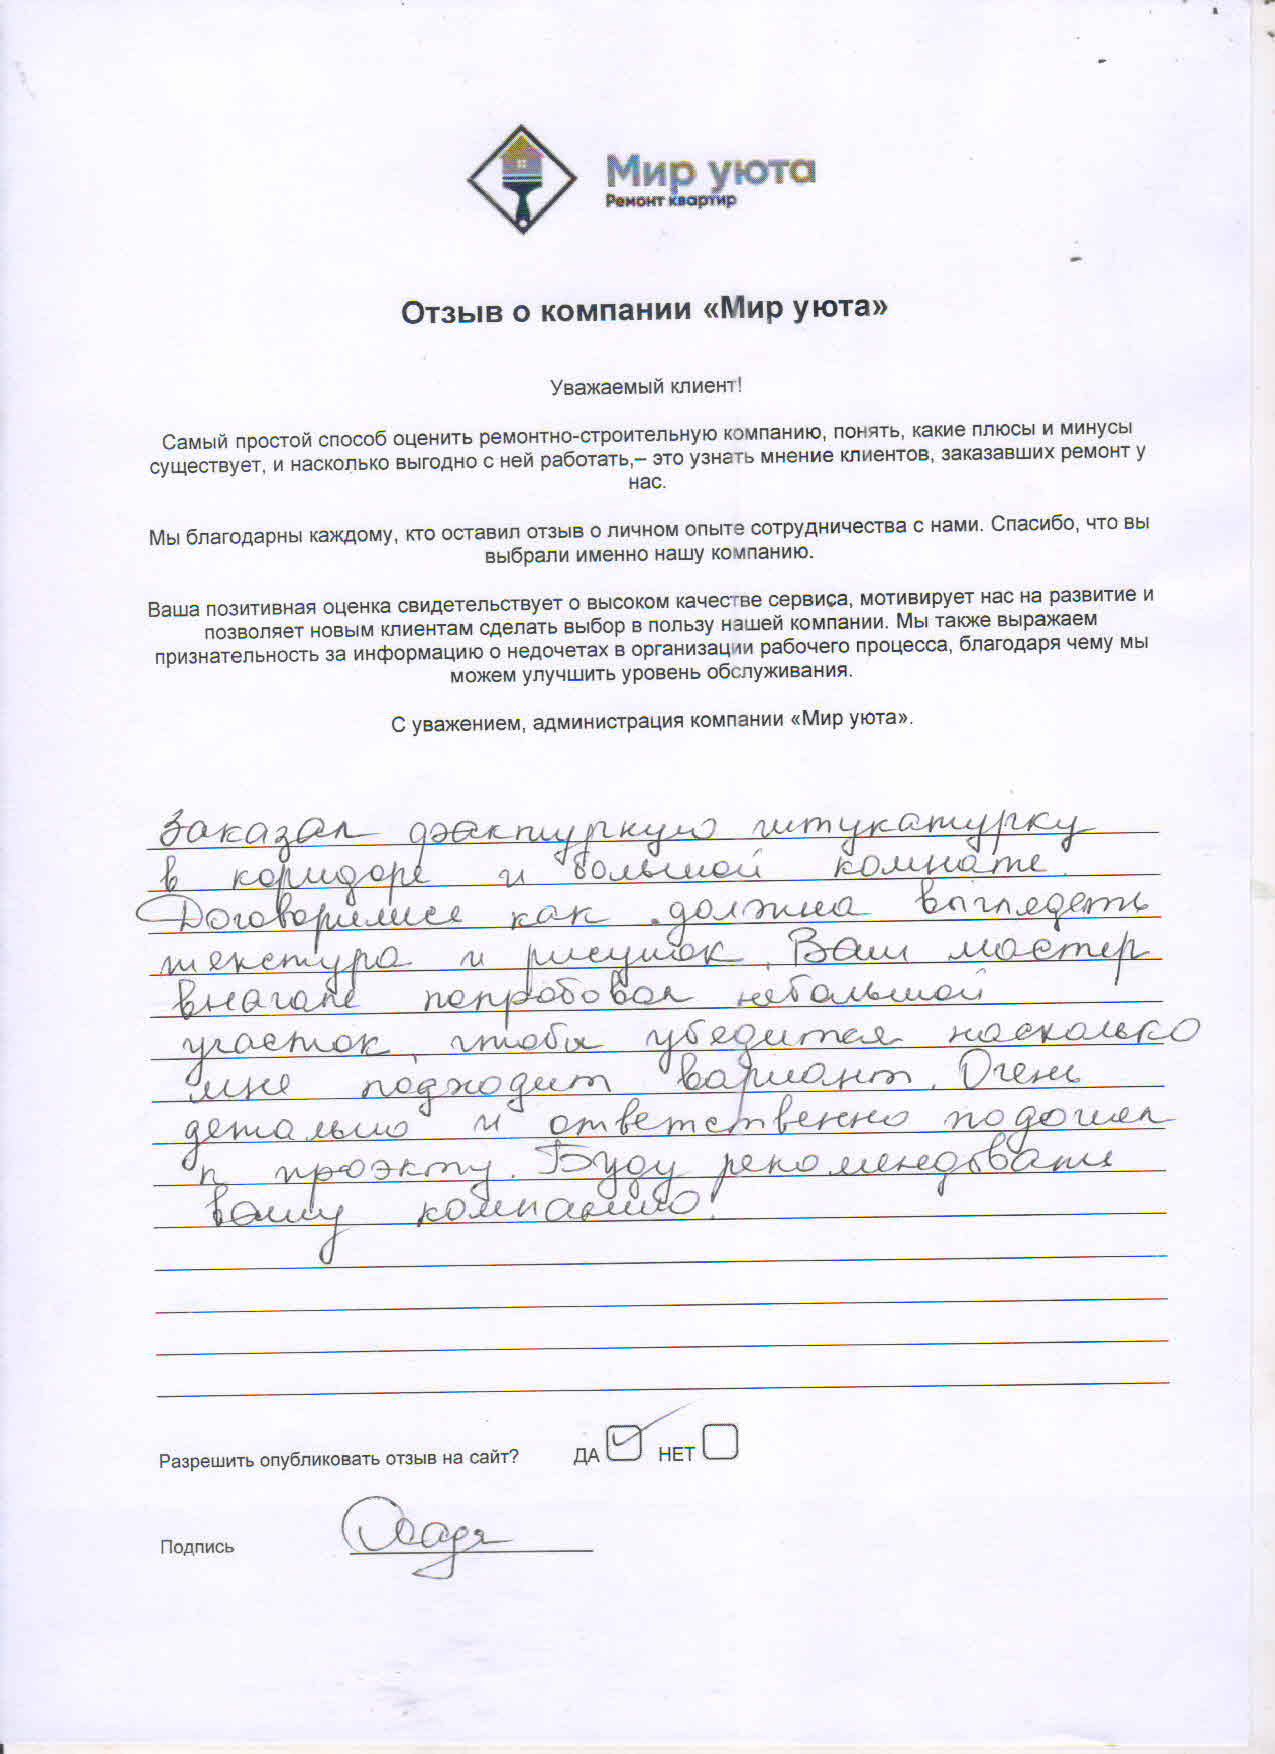 Мир уюта
Ремонт квартир
Отзыв о компании «Мир уюта»
Уважаемый клиент!
Самый простой способ оценить ремонтно-строительную компанию, понять, какие плюсы и минусы
существует, и насколько выгодно с ней работать,– это узнать мнение клиентов, заказавших ремонт у
нас.
Мы благодарны каждому, кто оставил отзыв о личном опыте сотрудничества с нами. Спасибо, что вы
выбрали именно нашу компанию.
Ваша позитивная оценка свидетельствует о высоком качестве сервиса, мотивирует нас на развитие и
позволяет новым клиентам сделать выбор в пользу нашей компании. Мы также выражаем
признательность за информацию о недочетах в организации рабочего процесса, благодаря чему мы
можем улучшить уровень обслуживания.
С уважением, администрация компании «Мир уюта».
Заказал штукатурку
в коридоре и большой комнате.
Договорились как должна выглядеть
текстура и рисунок. Ваш мастер
вначале попробовал небольшой
участок, чтобы убедится насколько
мне подходит вариант. Очень
детально и ответственно подошел
к проэкту. Буду рекомендовать
вашу компанию!
Разрешить опубликовать отзыв на сайт? ДА НЕТ
Подпись